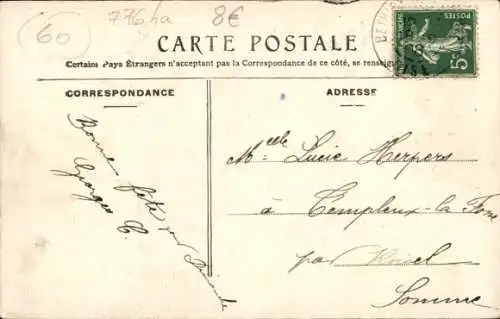 60
776ha
8€
CARTE POSTALE
Certains Pays Étrangers n'acceptent pas la Correspondance de ce côté, se renseign
POSTES
5c
CORRESPONDANCE
ADRESSE
Bonne fête
Georges C.
Melle Lucie Herpers
à Templeux-la-Fosse
par Roisel
Somme